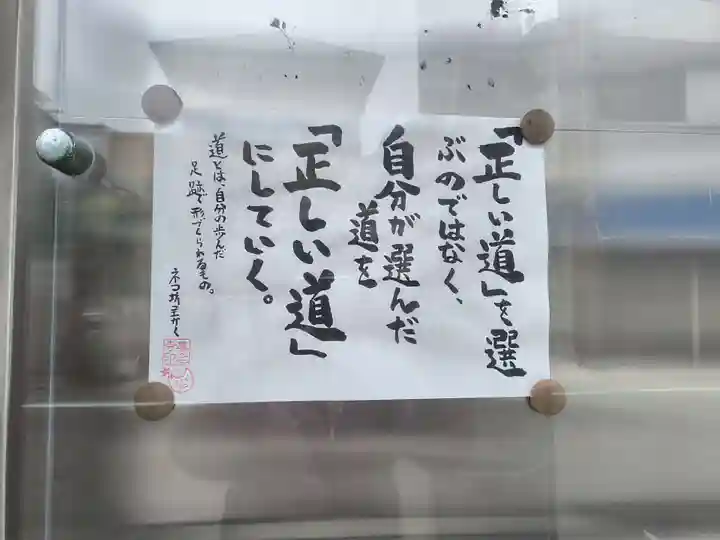 「正しい道」を選
ぶのではなく、
自分が選んだ
道を
「正しい道」
にしていく。
道とは、自分の歩んだ
足跡で形づくられるもの。
ネコ坊主かく